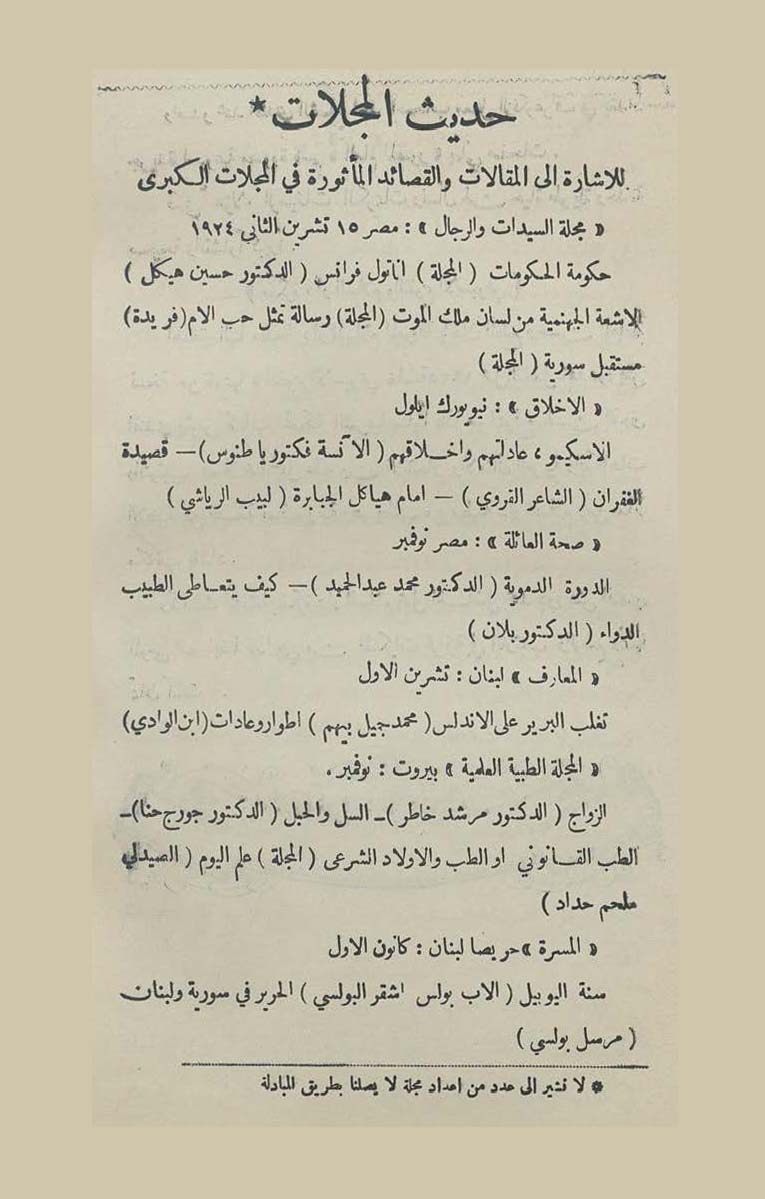 حديث المجلات *
للاشارة الى المقالات والقصائد المأثورة في المجلات الكبرى
« مجلة السيدات والرجال » : مصر ١٥ تشرين الثاني ١٩٢٤
حكومة الحكومات ( المجلة ) اناتول فرانس ( الدكتور حسين هيكل )
الاشعة الجهنمية من لسان ملك الموت (المجلة) رسالة تمثل حب الام (فريدة)
مستقبل سورية ( المجلة )
« الاخلاق » : نيويورك ايلول
الاسكيمو ، عاداتهم واخلاقهم ( الآنسة فكتوريا طنوس ) – قصيدة
الغفران ( الشاعر القروي ) – امام هياكل الجبابرة ( لبيب الرياشي )
« صحة العائلة » : مصر نوفمبر
الدورة الدموية ( الدكتور محمد عبدالحميد ) – كيف يتعاطى الطبيب
الدواء ( الدكتور بلان )
« المعارف » لبنان : تشرين الاول
تغلب البربر على الاندلس ( محمد جميل بيهم ) اطوار وعادات (ابن الوادي)
« المجلة الطبية العلمية » بيروت : نوفمبر .
الزواج ( الدكتور مرشد خاطر ) – السل والحبل ( الدكتور جورج حنا ) –
الطب القانوني او الطب والاولاد الشرعى ( المجلة ) علم اليوم ( الصيدلي
ملحم حداد )
« المسرة » حريصا لبنان : كانون الاول
سنة اليوبيل ( الاب بولس اشقر البولسي ) الحرير في سورية ولبنان
( مرسل بولسي )
* لا نشير الى عدد من اعداد مجلة لا يصلنا بطريق المبادلة